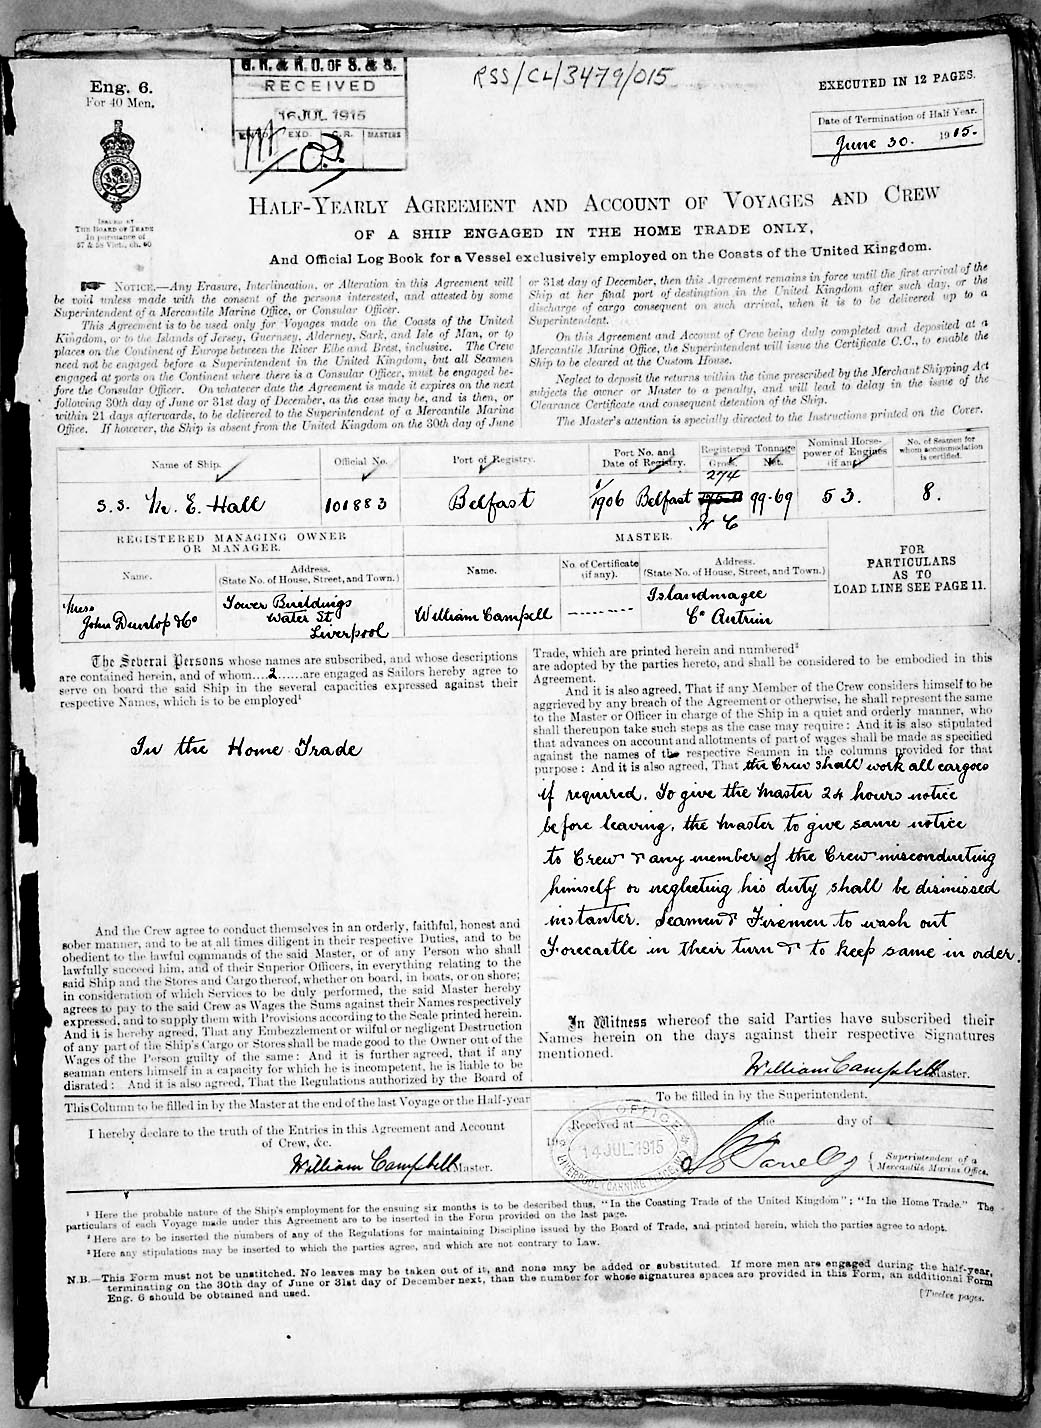 Eng. 6.
For 40 Men.
G. R. & R. O. OF S. & S.
RECEIVED
16 JUL 1915
EXD. C.R. MASTERS
RSS/CL/3479/015
EXECUTED IN 12 PAGES.
Date of Termination of Half Year.
June 30. 1915.
ISSUED BY
THE BOARD OF TRADE
In pursuance of
57 & 58 Vict., ch. 60
HALF-YEARLY AGREEMENT AND ACCOUNT OF VOYAGES AND CREW
OF A SHIP ENGAGED IN THE HOME TRADE ONLY,
And Official Log Book for a Vessel exclusively employed on the Coasts of the United Kingdom.
☞ NOTICE.—Any Erasure, Interlineation, or Alteration in this Agreement will
be void unless made with the consent of the persons interested, and attested by some
Superintendent of a Mercantile Marine Office, or Consular Officer.
This Agreement is to be used only for Voyages made on the Coasts of the United
Kingdom, or to the Islands of Jersey, Guernsey, Alderney, Sark, and Isle of Man, or to
places on the Continent of Europe between the River Elbe and Brest, inclusive. The Crew
need not be engaged before a Superintendent in the United Kingdom, but all Seamen
engaged at ports on the Continent where there is a Consular Officer, must be engaged be-
fore the Consular Officer. On whatever date the Agreement is made it expires on the next
following 30th day of June or 31st day of December, as the case may be, and is then, or
within 21 days afterwards, to be delivered to the Superintendent of a Mercantile Marine
Office. If however, the Ship is absent from the United Kingdom on the 30th day of June
or 31st day of December, then this Agreement remains in force until the first arrival of the
Ship at her final port of destination in the United Kingdom after such day, or the
discharge of cargo consequent on such arrival, when it is to be delivered up to a
Superintendent.
On this Agreement and Account of Crew being duly completed and deposited at a
Mercantile Marine Office, the Superintendent will issue the Certificate C.C., to enable the
Ship to be cleared at the Custom House.
Neglect to deposit the returns within the time prescribed by the Merchant Shipping Act
subjects the owner or Master to a penalty, and will lead to delay in the issue of the
Clearance Certificate and consequent detention of the Ship.
The Master's attention is specially directed to the Instructions printed on the Cover.
Name of Ship. Official No. Port of Registry. Port No. and Date of Registry. Registered Tonnage Gross. Net. Nominal Horse-power of Engines (if any) No. of Seamen for whom accommodation is certified.
274
S.S. M. E. Hall 101883 Belfast 1/1906 Belfast 99.69 53. 8.
W C
REGISTERED MANAGING OWNER
OR MANAGER.
MASTER.
Name. Address. (State No. of House, Street, and Town.) Name. No. of Certificate (if any). Address. (State No. of House, Street, and Town.)
FOR
PARTICULARS
AS TO
LOAD LINE SEE PAGE 11.
Mess
John Dunlop & Co
Tower Buildings
Water St
Liverpool
William Campbell
Islandmagee
Co Antrim
The Several Persons whose names are subscribed, and whose descriptions
are contained herein, and of whom....2......are engaged as Sailors hereby agree to
serve on board the said Ship in the several capacities expressed against their
respective Names, which is to be employed¹
In the Home Trade
And the Crew agree to conduct themselves in an orderly, faithful, honest and
sober manner, and to be at all times diligent in their respective Duties, and to be
obedient to the lawful commands of the said Master, or of any Person who shall
lawfully succeed him, and of their Superior Officers, in everything relating to the
said Ship and the Stores and Cargo thereof, whether on board, in boats, or on shore;
in consideration of which Services to be duly performed, the said Master hereby
agrees to pay to the said Crew as Wages the Sums against their Names respectively
expressed, and to supply them with Provisions according to the Scale printed herein.
And it is hereby agreed, That any Embezzlement or wilful or negligent Destruction
of any part of the Ship's Cargo or Stores shall be made good to the Owner out of the
Wages of the Person guilty of the same: And it is further agreed, that if any
seaman enters himself in a capacity for which he is incompetent, he is liable to be
disrated: And it is also agreed, That the Regulations authorized by the Board of
Trade, which are printed herein and numbered²
are adopted by the parties hereto, and shall be considered to be embodied in this
Agreement.
And it is also agreed, That if any Member of the Crew considers himself to be
aggrieved by any breach of the Agreement or otherwise, he shall represent the same
to the Master or Officer in charge of the Ship in a quiet and orderly manner, who
shall thereupon take such steps as the case may require: And it is also stipulated
that advances on account and allotments of part of wages shall be made as specified
against the names of the respective Seamen in the columns provided for that
purpose: And it is also agreed, That the Crew shall work all cargoes
if required. To give the master 24 hours notice
before leaving, the master to give same notice
to Crew & any member of the Crew misconducting
himself or neglecting his duty shall be dismissed
instanter. Seamen & Firemen to wash out
Forecastle in their turn & to keep same in order.
In Witness whereof the said Parties have subscribed their
Names herein on the days against their respective Signatures
mentioned.
William Campbell Master.
This Column to be filled in by the Master at the end of the last Voyage or the Half-year
I hereby declare to the truth of the Entries in this Agreement and Account
of Crew, &c.
William Campbell Master.
To be filled in by the Superintendent.
Received at the day of
14 JUL 1915
Superintendent of a
Mercantile Marine Office.
¹ Here the probable nature of the Ship's employment for the ensuing six months is to be described thus, "In the Coasting Trade of the United Kingdom"; "In the Home Trade." The
particulars of each Voyage made under this Agreement are to be inserted in the Form provided on the last page.
² Here are to be inserted the numbers of any of the Regulations for maintaining Discipline issued by the Board of Trade, and printed herein, which the parties agree to adopt.
³ Here any stipulations may be inserted to which the parties agree, and which are not contrary to Law.
N.B.—This Form must not be unstitched. No leaves may be taken out of it, and none may be added or substituted. If more men are engaged during the half-year,
terminating on the 30th day of June or 31st day of December next, than the number for whose signatures spaces are provided in this Form, an additional Form
Eng. 6 should be obtained and used.
[Twelve pages.